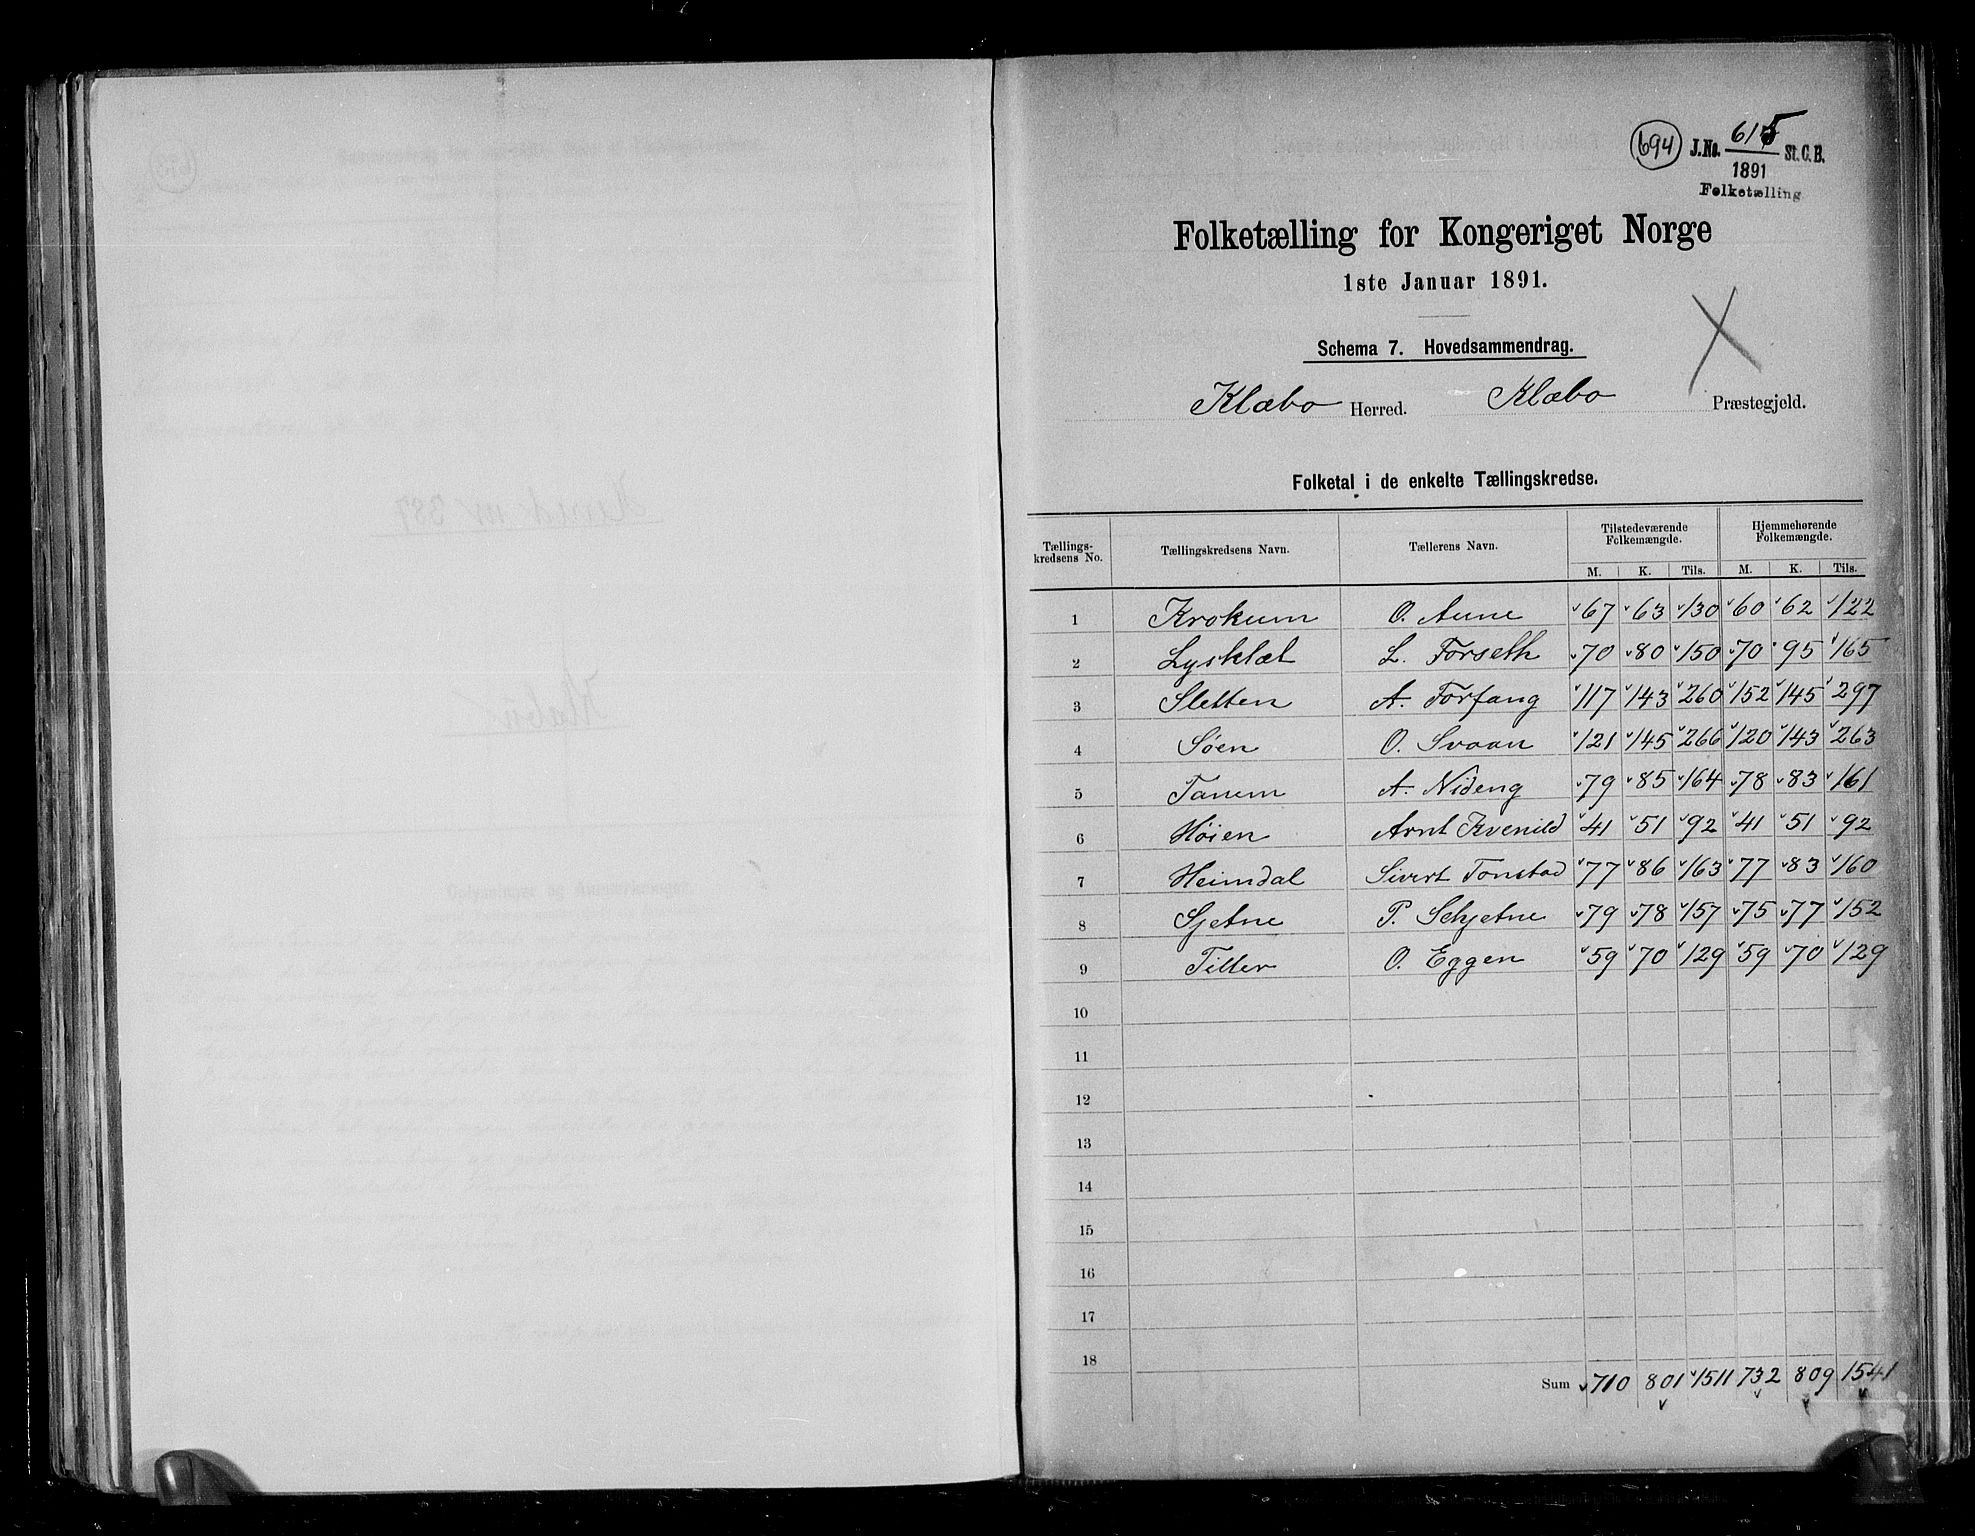 694 J.No. 615 St.C.B.
1891
Folketælling
Folketælling for Kongeriget Norge
1ste Januar 1891.
Schema 7. Hovedsammendrag.
Klæbo Herred. Klæbo Præstegjeld.
Folketal i de enkelte Tællingskredse.
Tællings-kredsens No. Tællingskredsens Navn. Tællerens Navn. Tilstedeværende Folkemængde. Hjemmehørende Folkemængde.
M. K. Tils. M. K. Tils.
1 Krokum O. Aune 67 63 130 60 62 122
2 Lysklæt L. Forseth 70 80 150 70 95 165
3 Sletten A. Forfang 117 143 260 152 145 297
4 Søen O. Svaan 121 145 266 120 143 263
5 Tanem A. Nideng 79 85 164 78 83 161
6 Høien Arnt Kvenild 41 51 92 41 51 92
7 Heimdal Sivert Tonstad 77 86 163 77 83 160
8 Sjetne P. Schjetne 79 78 157 75 77 152
9 Tiller O. Eggen 59 70 129 59 70 129
10
11
12
13
14
15
16
17
18
Sum 710 801 1511 732 809 1541